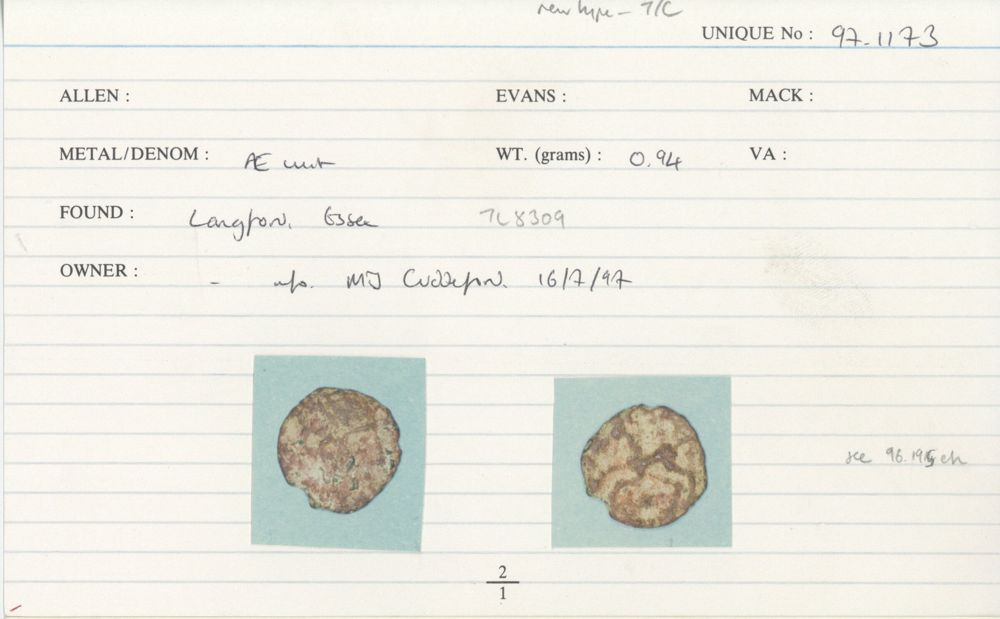 new type - T/C
UNIQUE No : 97.1173
ALLEN : EVANS : MACK :
METAL/DENOM : Æ unit WT. (grams) : 0.94 VA :
FOUND : Langford, Essex TL 8309
OWNER : - info. MJ Cuddeford 16/7/97
see 96.
2
1